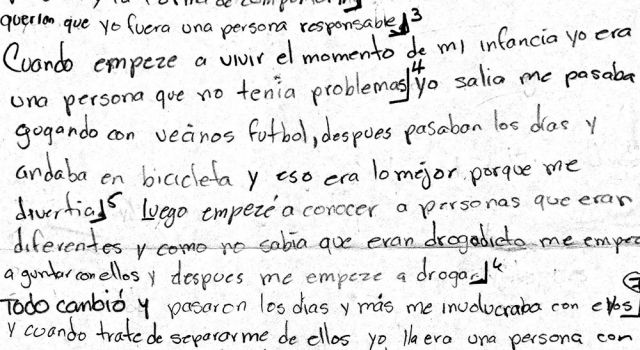 querian que yo fuera una persona responsable 3
Cuando empeze a vivir el momento de mi infancia yo era
una persona que no tenia problemas 4 yo salia me pasaba
gogando con vecinos futbol, despues pasaban los dias y
andaba en bicicleta y eso era lo mejor porque me
divertia 5 Luego empezé a conocer a personas que eran
diferentes y como no sabia que eran drogadicto me empec
a guntar con ellos y despues me empeze a drogar 6
Todo cambió y pasaron los dias y más me inuolucraba con ellos
y cuando trate de separarme de ellos yo lla era una persona con